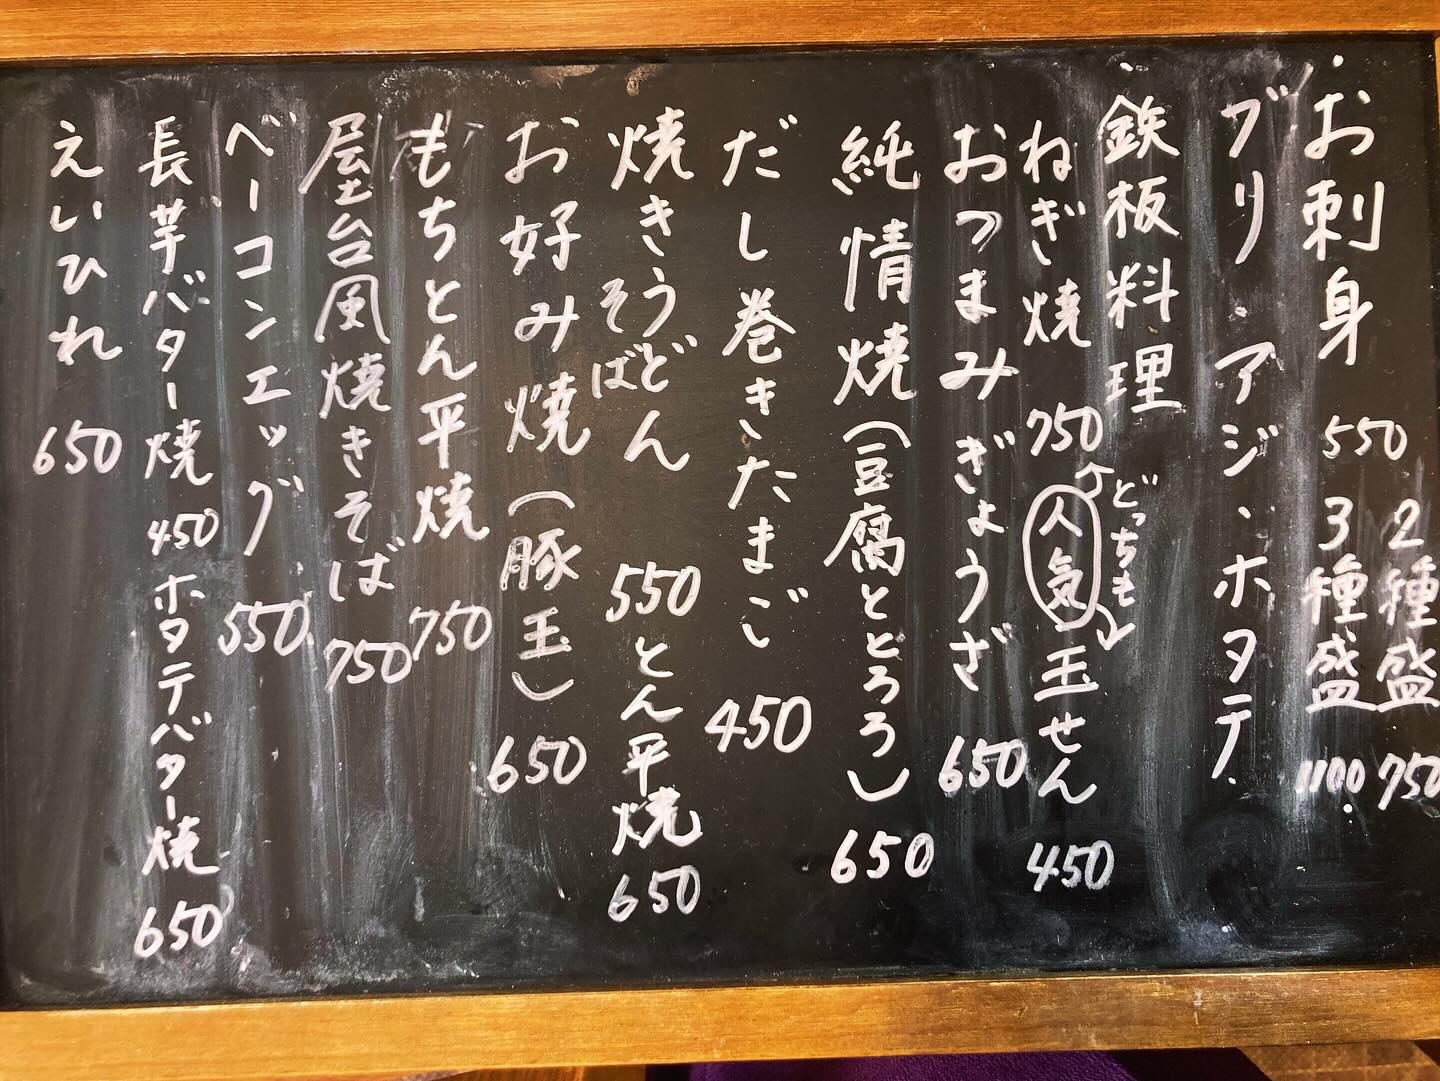 お刺身 550 2種盛 750
3種盛 1100
ブリ アジ・ホタテ
鉄板料理
どっちも
ねぎ焼 750 人気 玉せん 450
おつまみぎょうざ 650
純情焼(豆腐ととろろ) 650
だし巻きたまご 450
焼きうどん 550 とん平焼 650
そば
お好み焼(豚玉) 650
もちとん平焼 750
屋台風焼きそば 750
ベーコンエッグ 550
長芋バター焼 450 ホタテバター焼 650
えいひれ 650